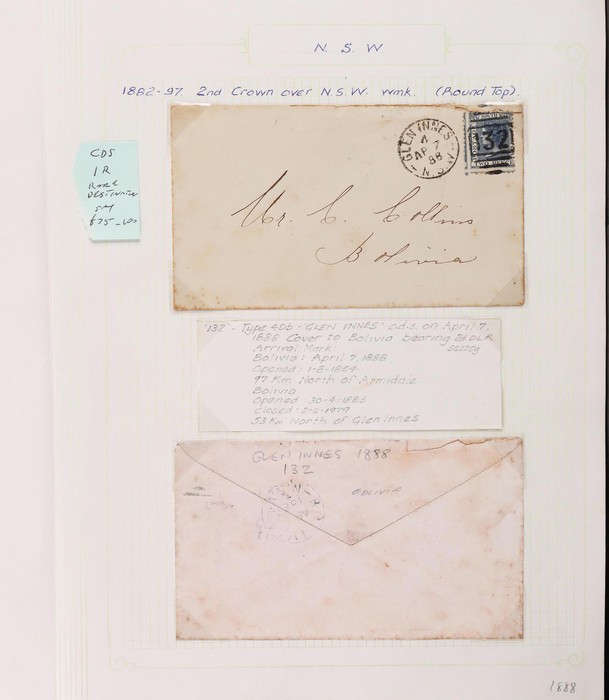 N. S. W
1882-97 2nd Crown over N.S.W. Wmk. (Round Top).
CDS
1 R
RARE
DESTINATION
$75-00
GLEN INNES
A
AP 7
88
N.S.W
132
TWO PENCE
Mr. C. Collins
Bolivia
'132' - Type 4Db - "GLEN INNES" c.d.s. on April 7,
1888 Cover to Bolivia bearing 2d DLR
Arrival Mark
Bolivia: April 7, 1888
Opened: 1-8-1854
97 Km North of Armidale
Bolivia
Opened: 30-4-1883
Closed: 2-2-1979
53 Km North of Glen Innes
GLEN INNES 1888
132
BOLIVIA
1888